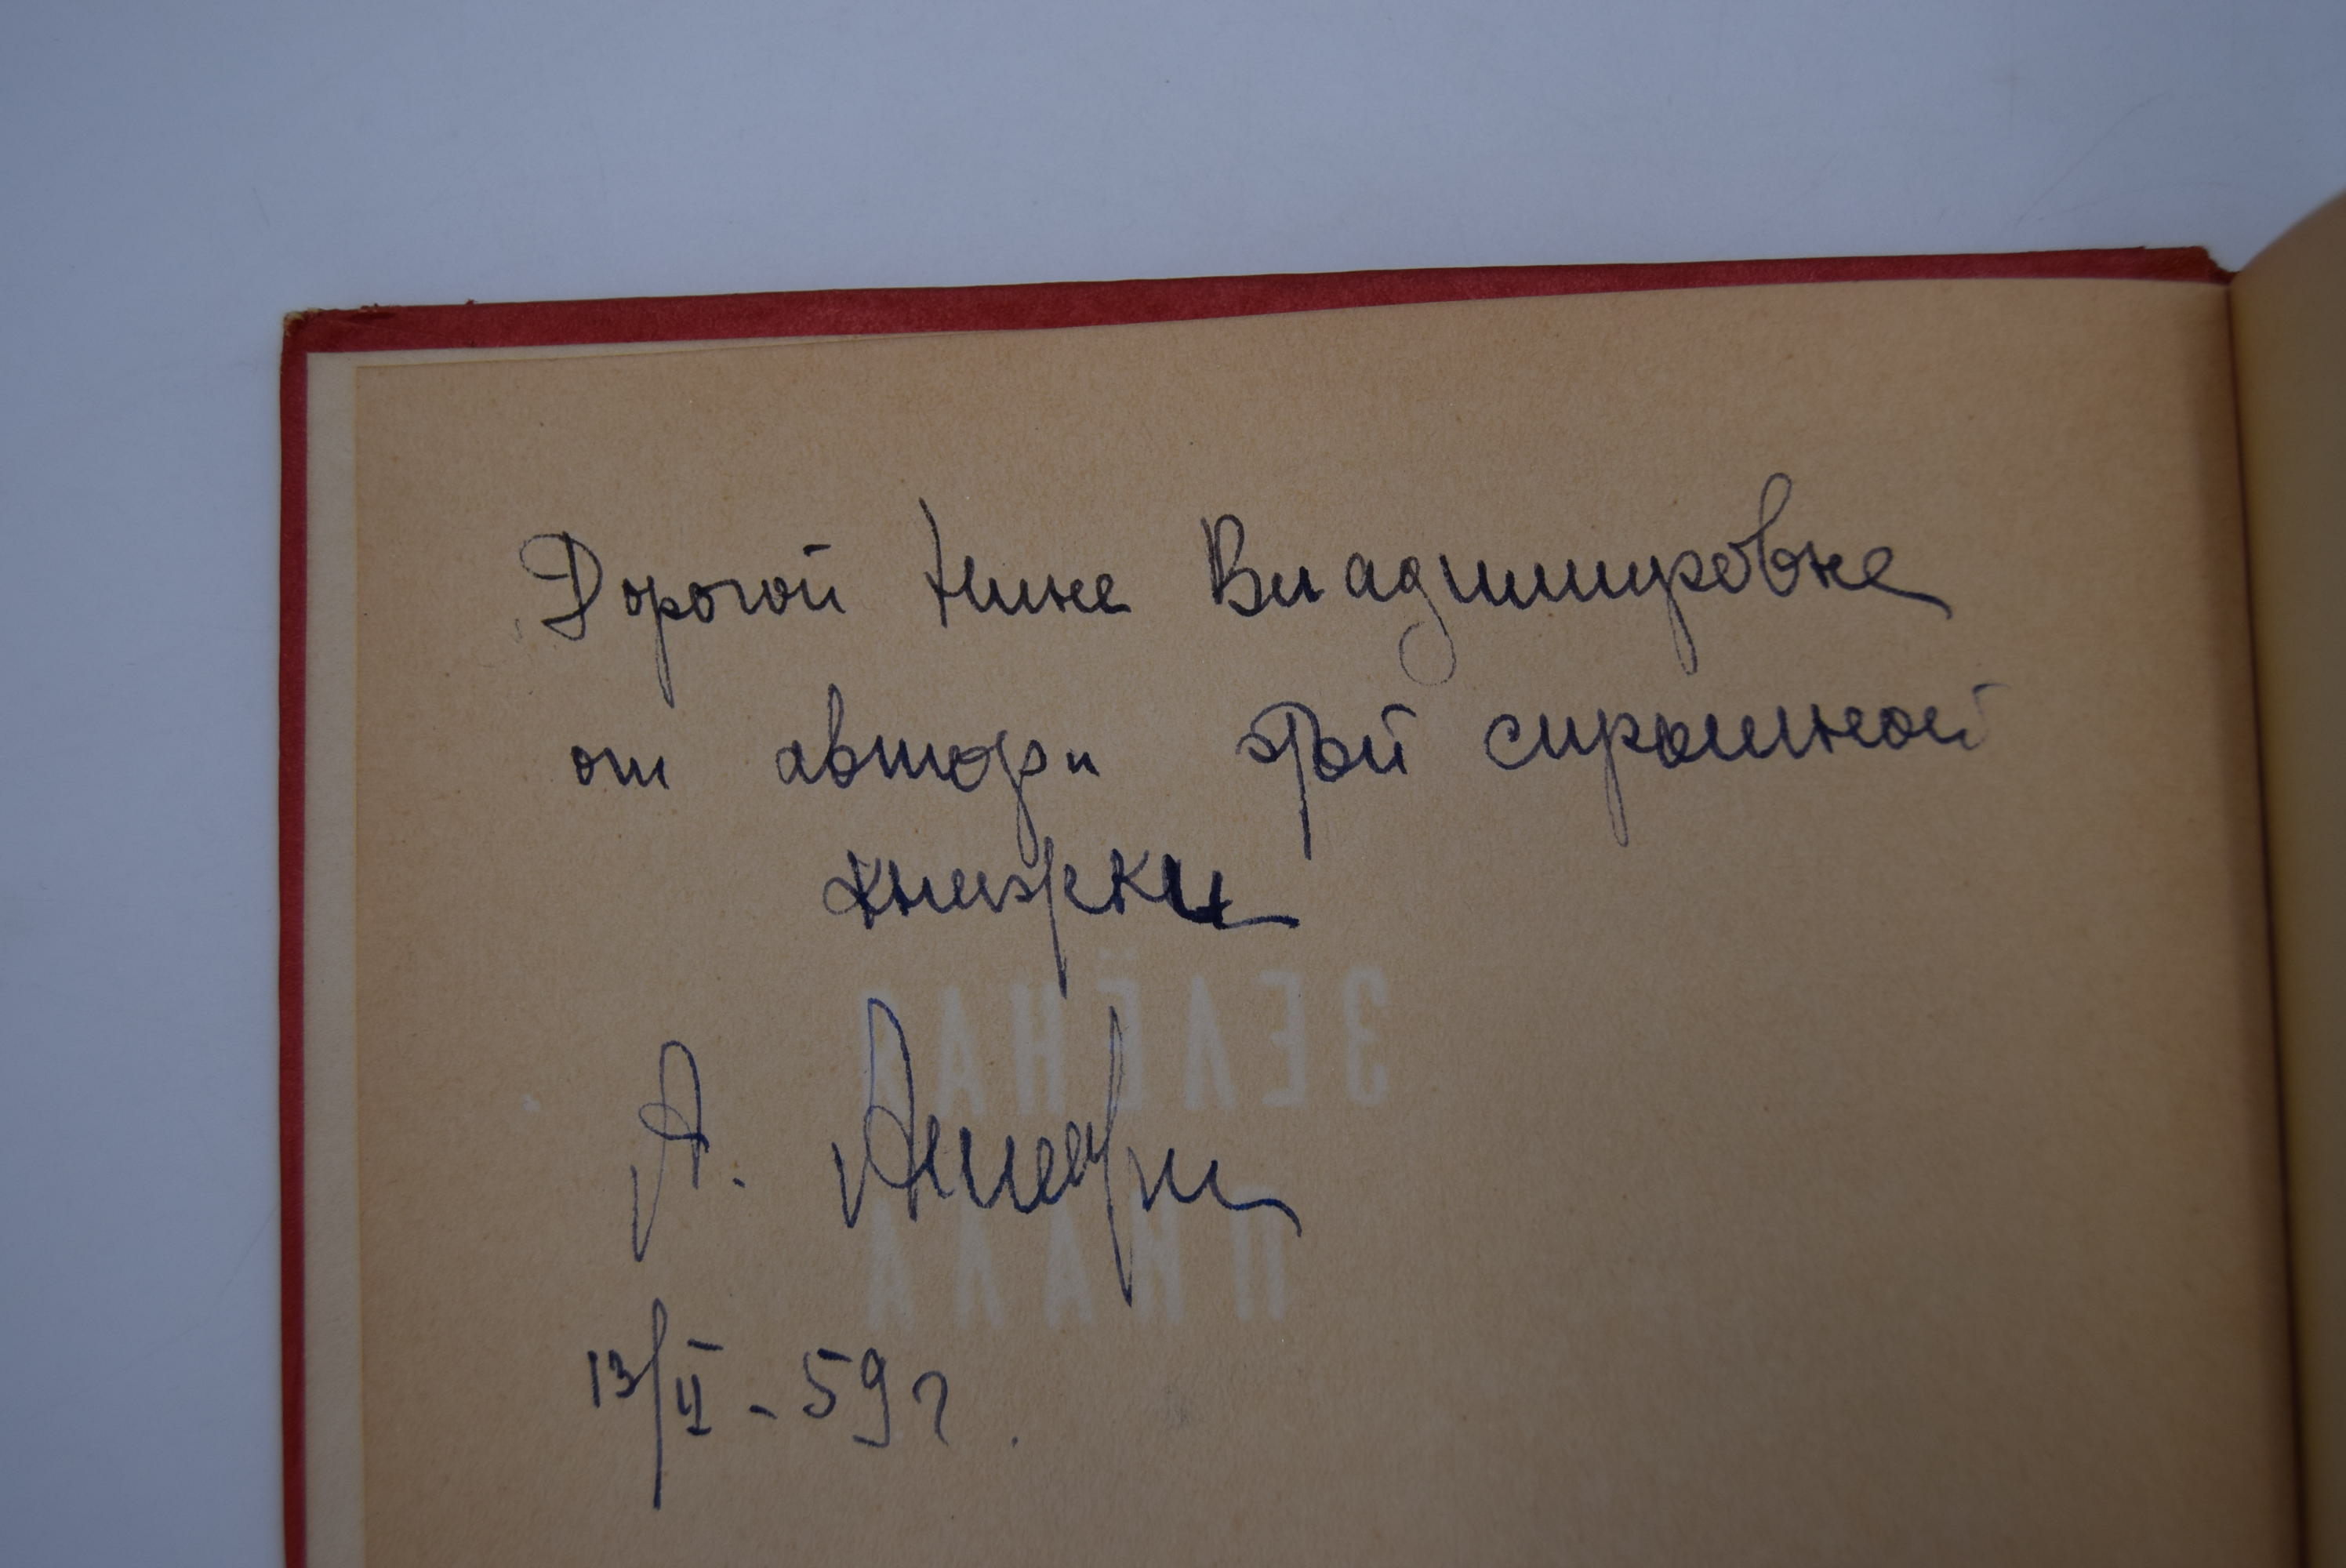 Дорогой Нине Владимировне
от автора этой скромной
книжки
А.
13/II - 59 г.
ЗЕЛЁНАЯ
ПИАЛА